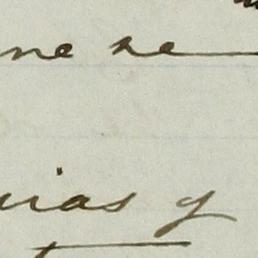 ne se
uias y